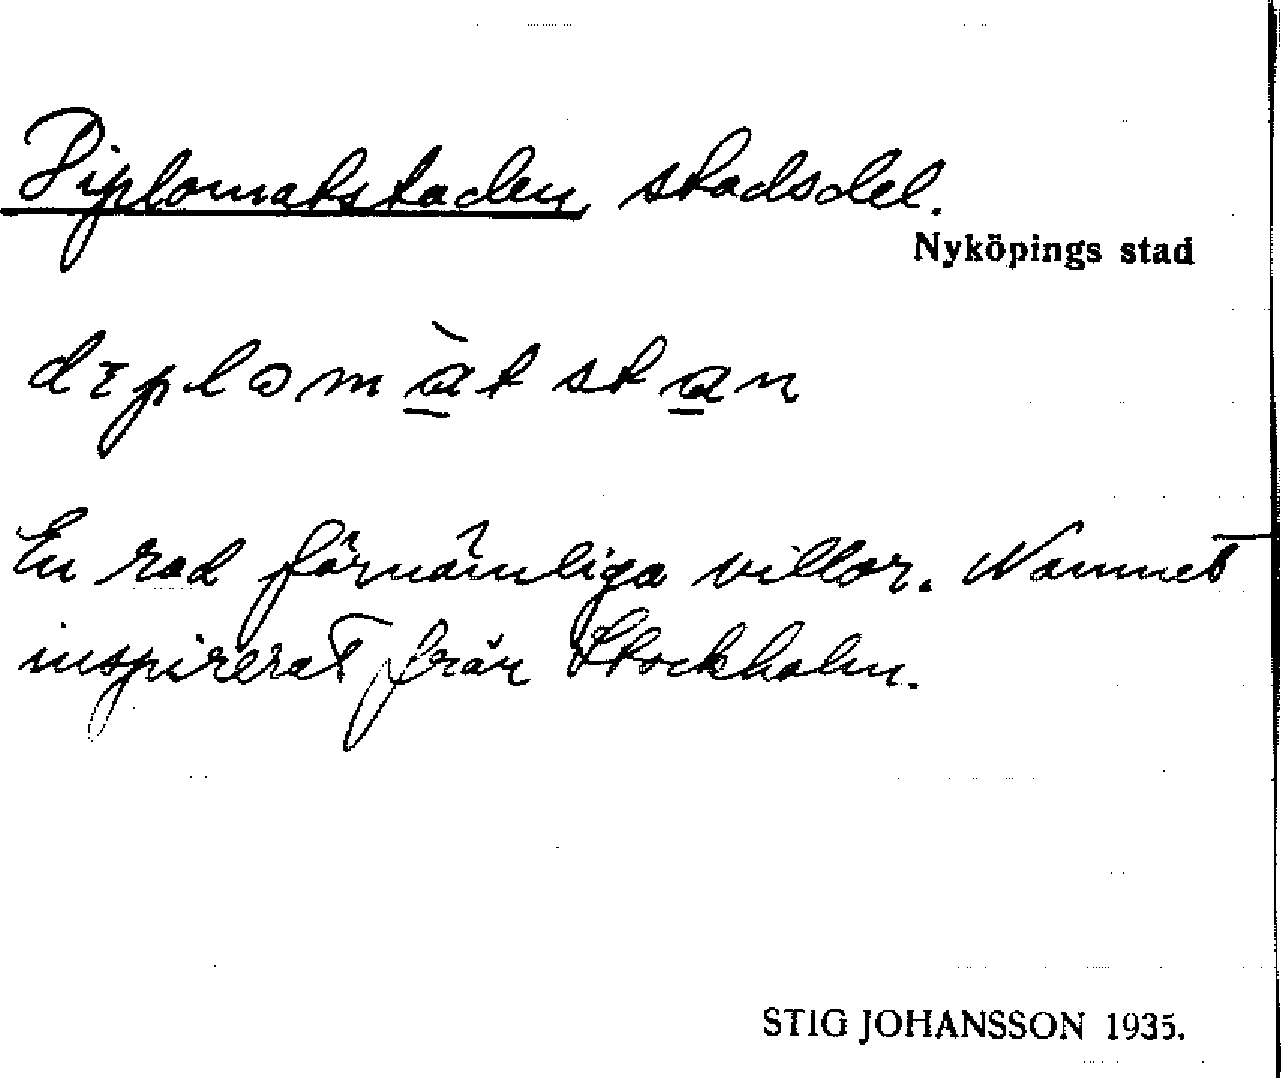 Diplomatstaden stadsdel.
Nyköpings stad
diplomàtstan
En rad förnämliga villor. Namnet
inspirerat från Stockholm.
STIG JOHANSSON 1935.